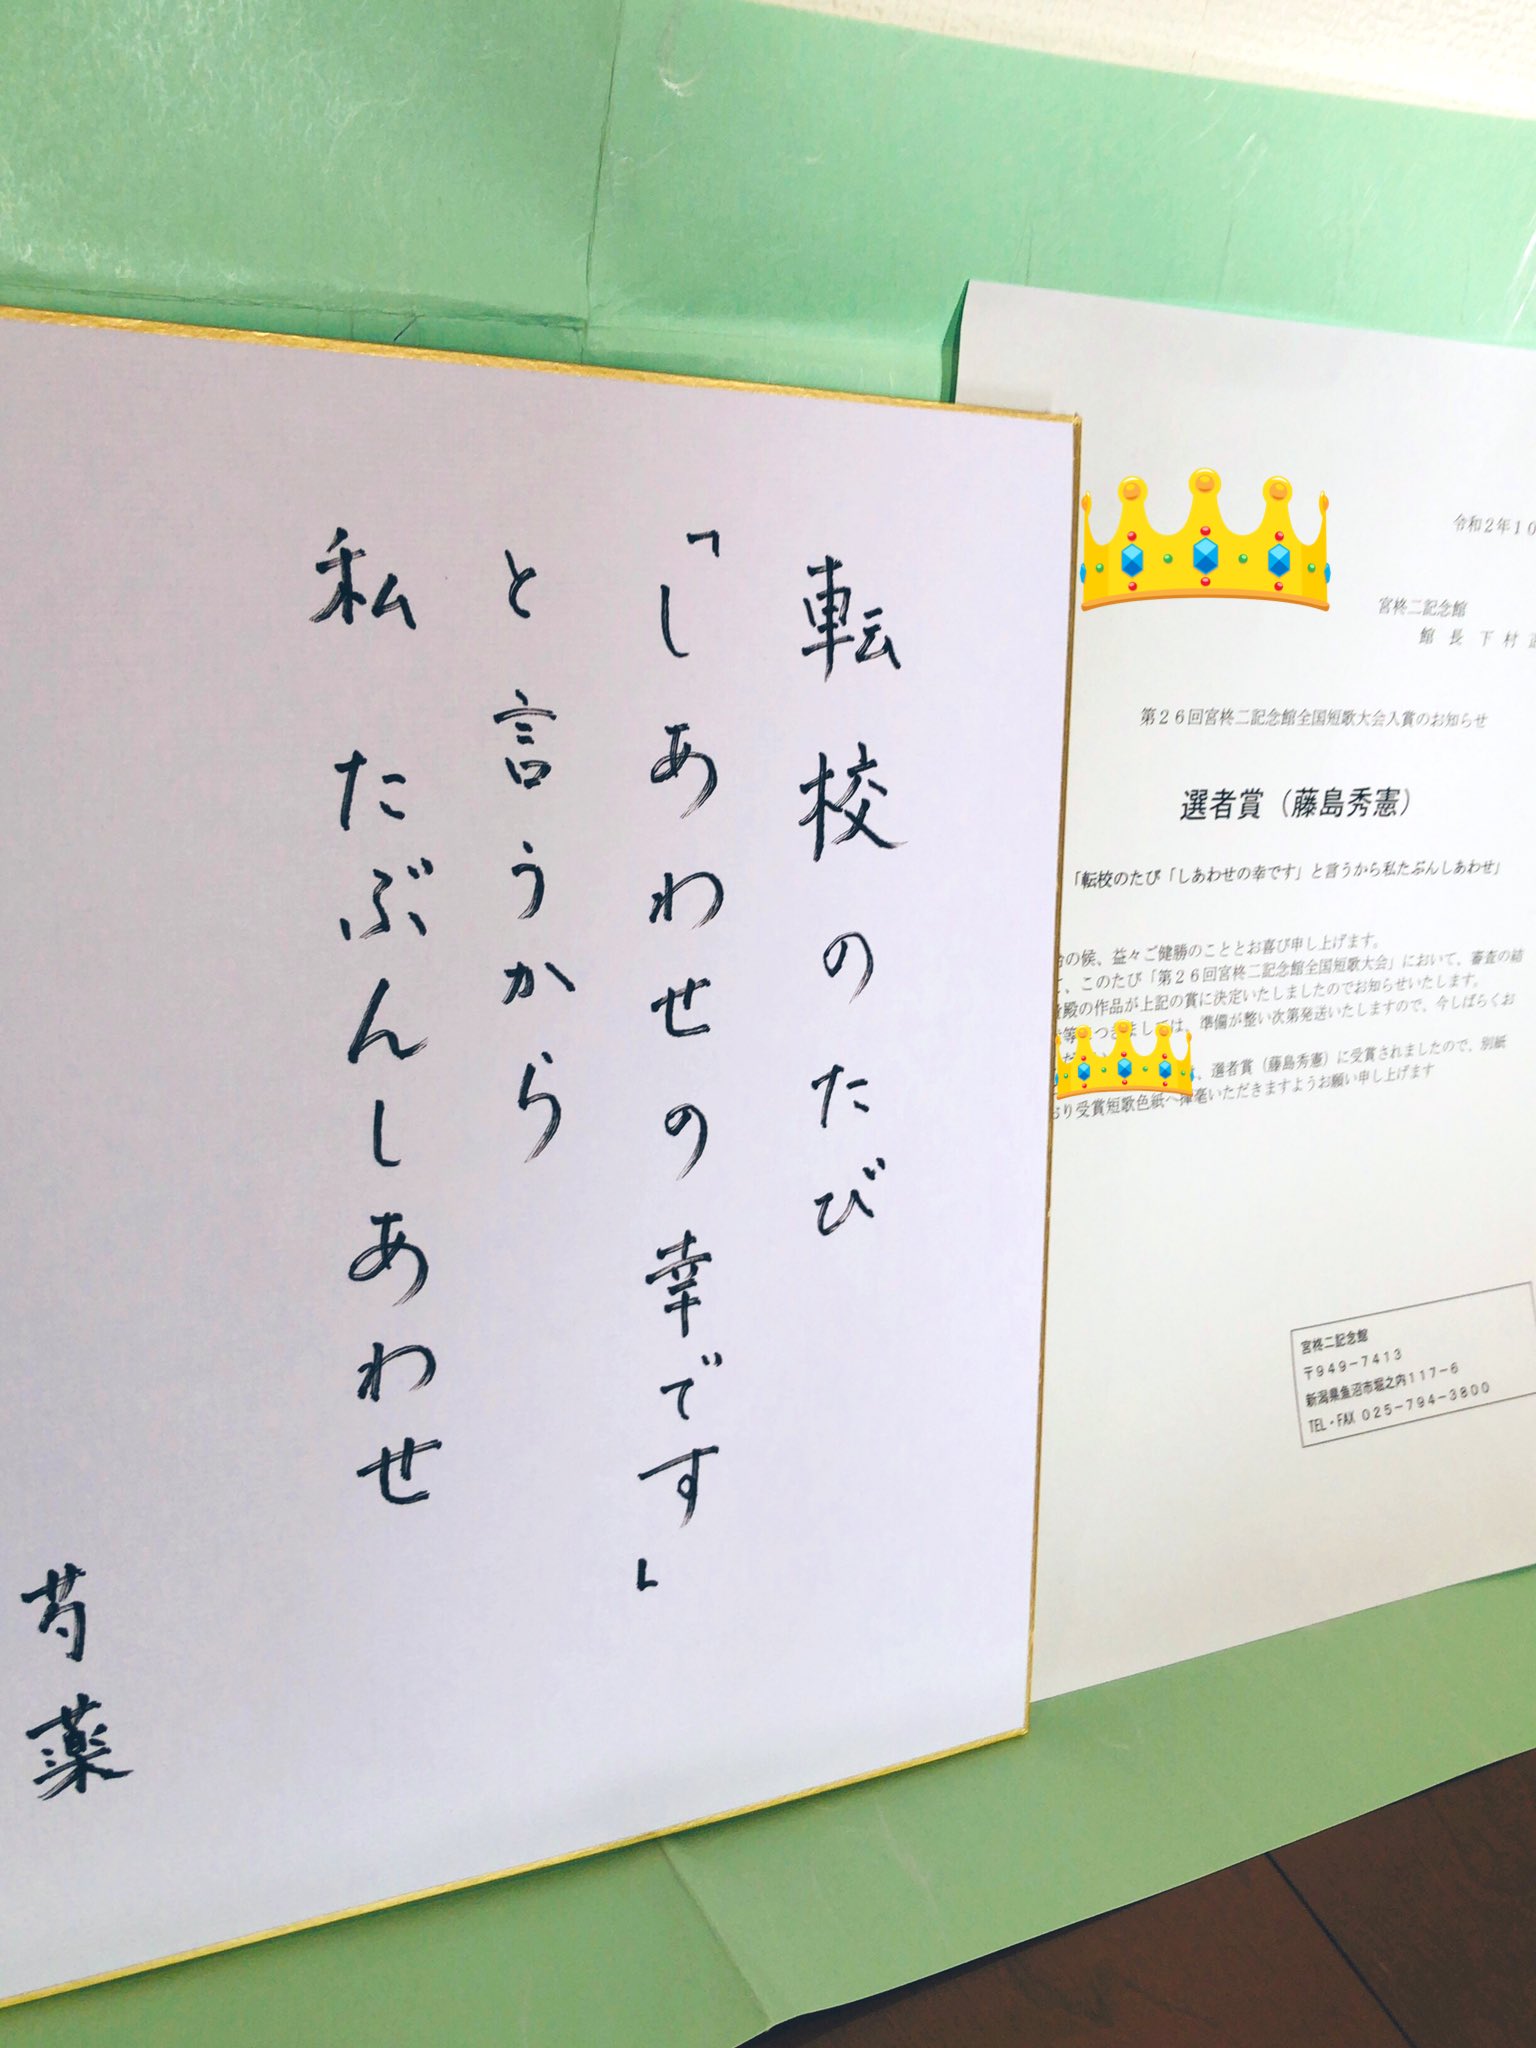 転校のたび
「しあわせの幸です」
と言うから
私 たぶんしあわせ
芍薬
令和2年10
宮柊二記念館
館 長 下 村
第26回宮柊二記念館全国短歌大会入賞のお知らせ
選者賞（藤島秀憲）
「転校のたび「しあわせの幸です」と言うから私たぶんしあわせ」
の候、益々ご健勝のこととお喜び申し上げます。
、このたび「第26回宮柊二記念館全国短歌大会」において、審査の結
殿の作品が上記の賞に決定いたしましたのでお知らせいたします。
等につきましては、準備が整い次第発送いたしますので、今しばらくお
、選者賞（藤島秀憲）に受賞されましたので、別紙
おり受賞短歌色紙へ揮毫いただきますようお願い申し上げます
宮柊二記念館
〒949-7413
新潟県魚沼市堀之内117-6
TEL・FAX 025-794-3800